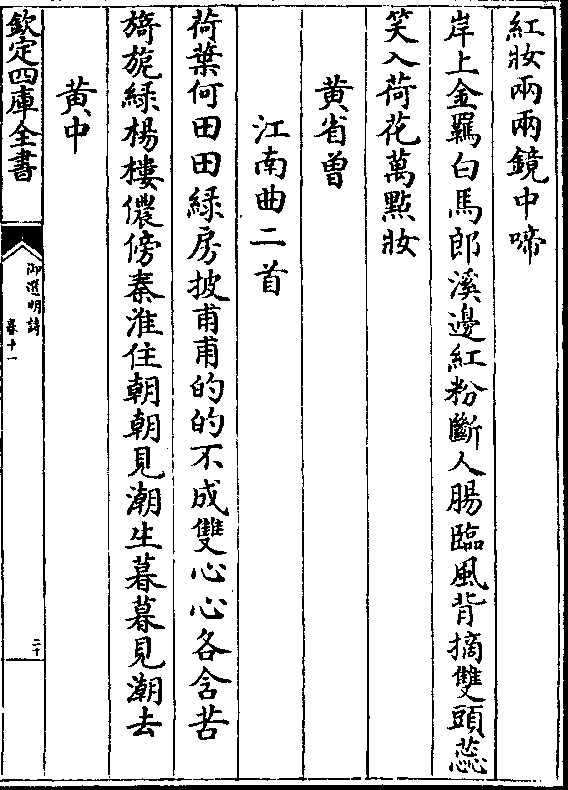 紅妝兩兩鏡中啼
岸上金羈白馬郎溪邊紅粉斷人腸臨風背摘雙頭蕊
笑入荷花萬點妝
黄省曾
江南曲二首
荷葉何田田綠房披甫甫的的不成雙心心各含苦
旖旎綠楊樓儂傍秦淮住朝朝見潮生暮暮見潮去
黄中
欽定四庫全書
御選明詩
卷十一
二十